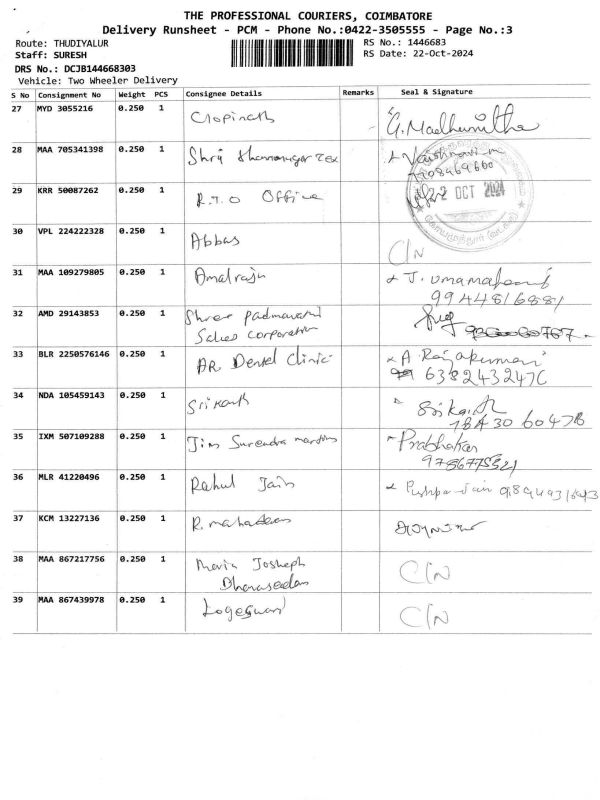 THE PROFESSIONAL COURIERS, COIMBATORE
Delivery Runsheet - PCM - Phone No.:0422-3505555 - Page No.:3
Route: THUDIYALUR RS No.: 1446683
Staff: SURESH RS Date: 22-Oct-2024
DRS No.: DCJB144668303
Vehicle: Two Wheeler Delivery
S No Consignment No Weight PCS Consignee Details Remarks Seal & Signature
27 MYD 3055216 0.250 1 Gopinath G. Madhumitha
28 MAA 705341398 0.250 1 Shry Tex
29 KRR 50087262 0.250 1 R.T.O Office
22 OCT 2024
30 VPL 224222328 0.250 1 Abbas C/N
31 MAA 109279805 0.250 1 Amalraju J. Umamaheswari
9944816881
32 AMD 29143853 0.250 1 Shree Padmavathi
Sales Corporation
33 BLR 2250576146 0.250 1 AR Dental Clinic A Rajakumari
34 NDA 105459143 0.250 1 Srikanth
35 IXM 507109288 0.250 1 Jim Surendra Prabhakar
36 MLR 41220496 0.250 1 Rahul Jain Pushpa Jain
37 KCM 13227136 0.250 1 R. mahadevan
38 MAA 867217756 0.250 1 Josheph C/N
39 MAA 867439978 0.250 1 Logeswari C/N